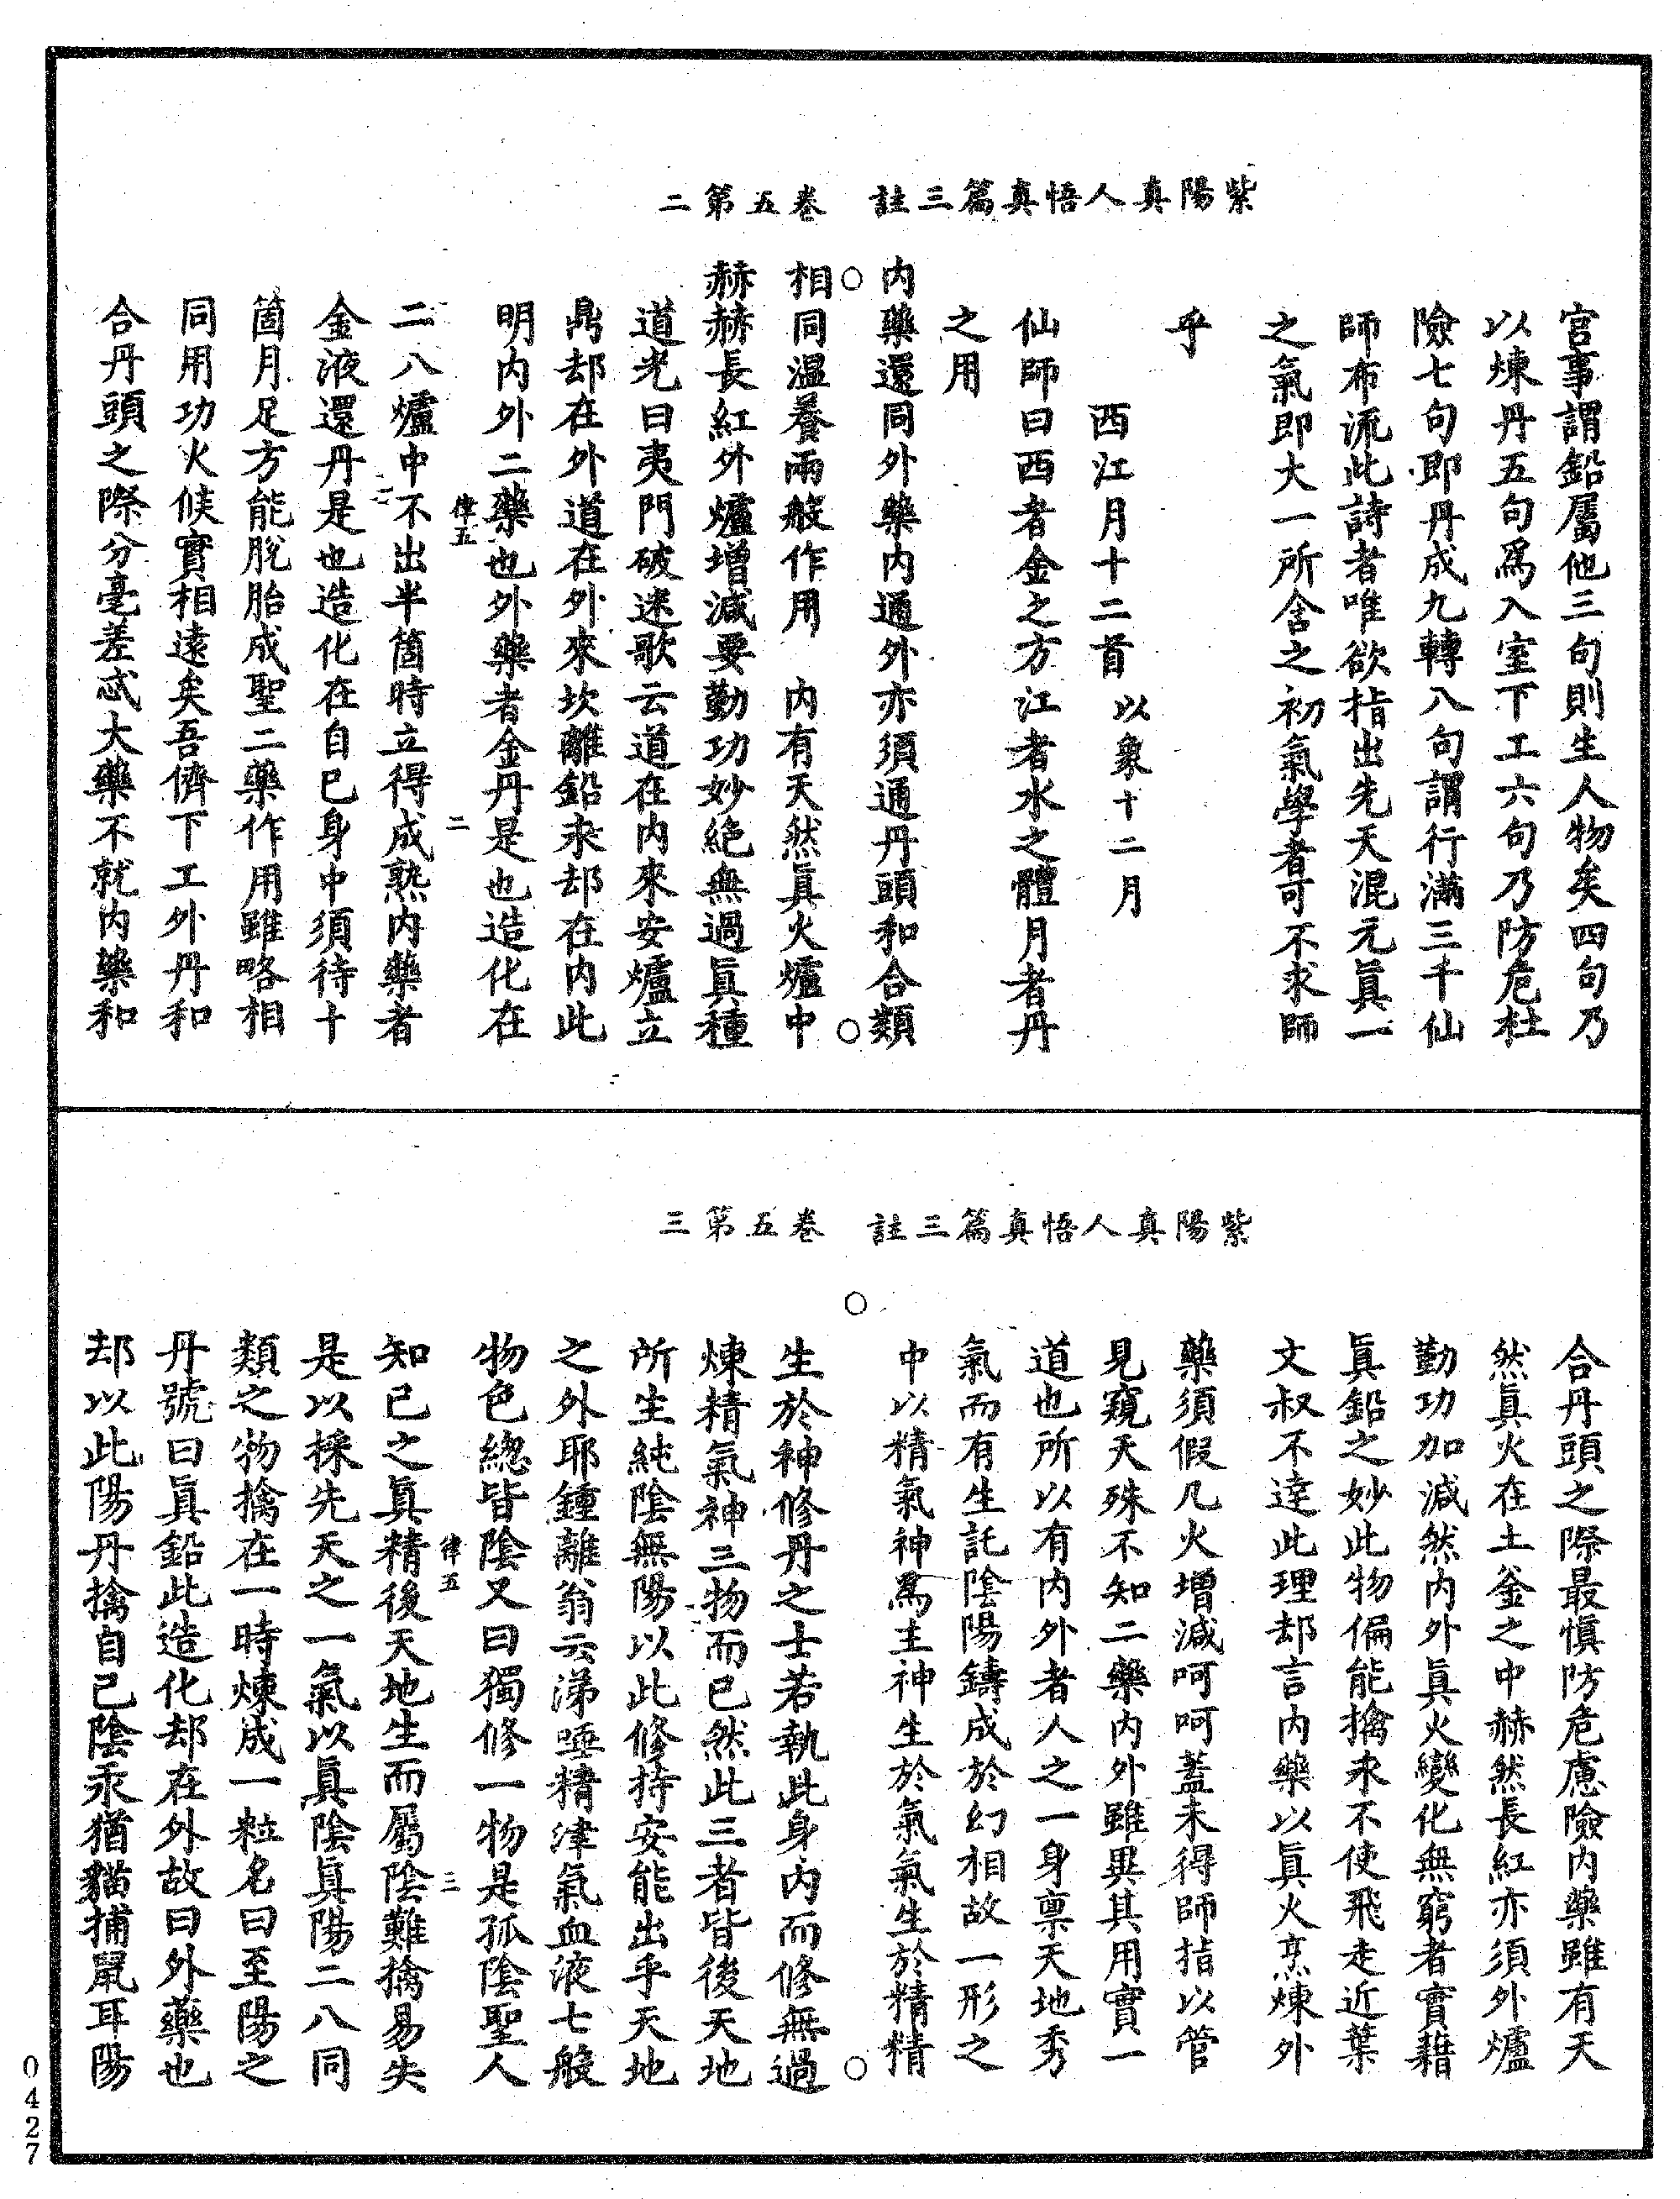 紫陽真人悟真篇三註　卷五第二
官事謂鉛屬他三句則生人物矣四句乃
以煉丹五句為入室下工六句乃防危杜
險七句即丹成九轉八句謂行滿三千仙
師布流此詩者唯欲指出先天混元眞一
之氣即大一所含之初氣學者可不求師
乎
西江月十二首　以象十二月
仙師曰西者金之方江者水之體月者丹
之用
內藥還同外藥內通外亦須通丹頭和合類
相同溫養兩般作用　內有天然眞火爐中
赫赫長紅外爐增減要勤功妙絕無過眞種
道光曰夷門破迷歌云道在內來安爐立
鼎却在外道在外來坎離鉛汞却在內此
明內外二藥也外藥者金丹是也造化在
律五　二
二八爐中不出半箇時立得成熟內藥者
金液還丹是也造化在自己身中須待十
箇月足方能脫胎成聖二藥作用雖略相
同用功火候實相遠矣吾儕下工外丹和
合丹頭之際分毫差忒大藥不就內藥和
紫陽真人悟真篇三註　卷五第三
合丹頭之際最慎防危慮險內藥雖有天
然眞火在土釜之中赫然長紅亦須外爐
勤功加減然內外眞火變化無窮者實藉
眞鉛之妙此物偏能擒汞不使飛走近葉
文叔不達此理却言內藥以眞火烹煉外
藥須假凡火增減呵呵蓋未得師指以管
見窺天殊不知二藥內外雖異其用實一
道也所以有內外者人之一身稟天地秀
氣而有生託陰陽鑄成於幻相故一形之
中以精氣神為主神生於氣氣生於精精
生於神修丹之士若執此身內而修無過
煉精氣神三物而已然此三者皆後天地
所生純陰無陽以此修持安能出乎天地
之外耶鍾離翁云涕唾精津氣血液七般
物色總皆陰又曰獨修一物是孤陰聖人
律五　三
知己之眞精後天地生而屬陰難擒易失
是以採先天之一氣以眞陰眞陽二八同
類之物擒在一時煉成一粒名曰至陽之
丹號曰眞鉛此造化却在外故曰外藥也
却以此陽丹擒自己陰汞猶貓捕鼠耳陽
0427